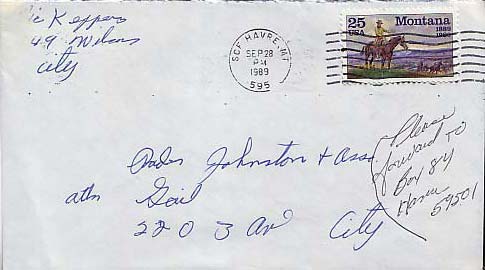 Keppers
49 Wilson
City
SCF HAVRE, MT
SEP 28
PM
1989
595
25
USA
Montana
1889
Johnston + Assc
attn Gail
220 3 Av City
Please
forward to
Box 84
Havre
59501